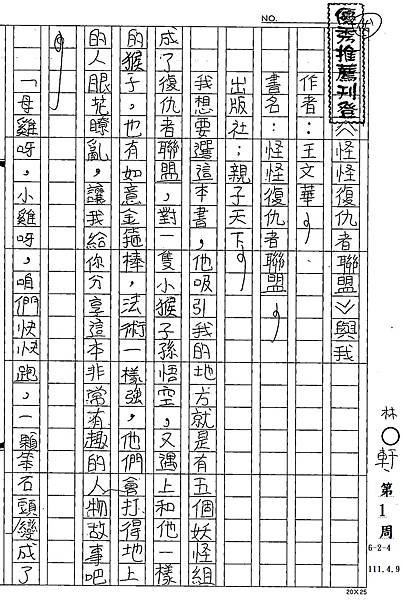 NO.
優秀推薦刊登
︽怪怪復仇者聯盟︾與我
作者：王文華
書名：怪怪復仇者聯盟
出版社：親子天下
我想要選這本書，他吸引我的地方就是有五個妖怪組
成了復仇者聯盟，對一隻小猴子孫悟空，又遇上和他一樣
的猴子，也有如意金箍棒，法術一樣強，他們會打得地上
的人眼花瞭亂，讓我給你分享這本非常有趣的人物故事吧
「母雞呀，小雞呀，咱們快快跑，一顆笨石頭變成了
林○軒
第1周
6-2-4
111.4.9
20X25